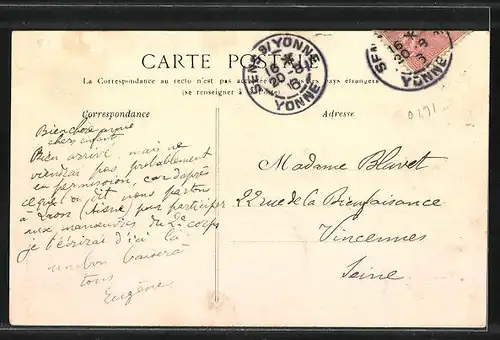 CARTE POSTALE
La Correspondance au recto n'est pas acceptée par tous les pays étrangers
(se renseigner à la Poste)
Correspondance
Adresse
SENS S/YONNE
YONNE
YONNE
0191
Bien chère amie
chers enfants
Bien arrivé mais ne
viendrai pas probablement
en permission, car d'après
ce que on dit nous partons
à Laon (Aisne) pour participer
aux manœuvres du 2e corps
je t'écrirai d'ici là
un bon baiser à
tous
Eugène
Madame Blavet
22 rue de la Bienfaisance
Vincennes
Seine